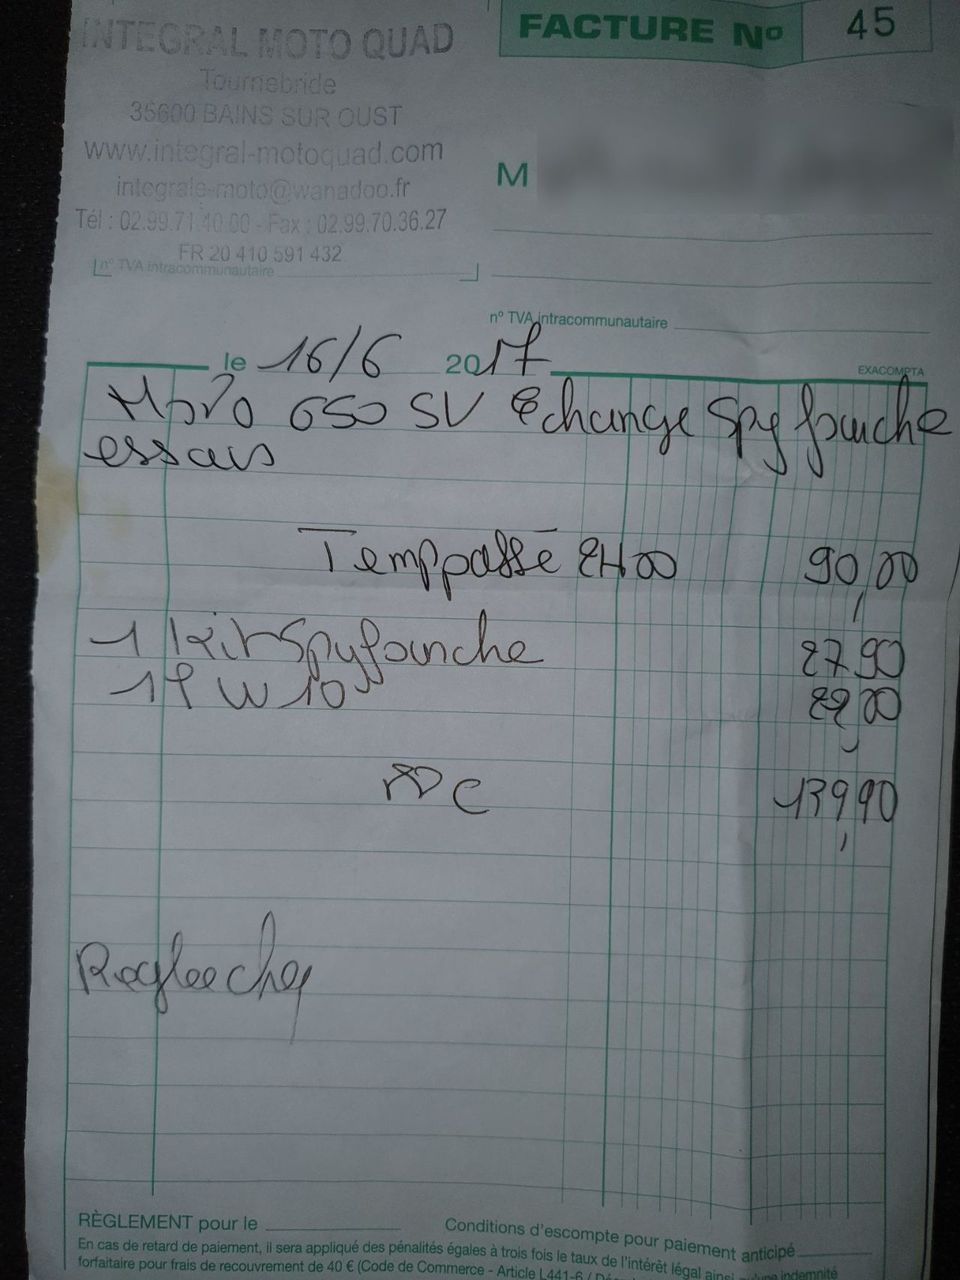 INTEGRAL MOTO QUAD
Tournebride
35600 BAINS SUR OUST
www.integral-motoquad.com
integrale-moto@wanadoo.fr
Tél : 02.99.71.40.00 - Fax : 02.99.70.36.27
FR 20 410 591 432
n° TVA intracommunautaire
FACTURE No 45
M
n° TVA intracommunautaire
le 16/6 2017
EXACOMPTA
Moto 650 SV Echange Spy fourche
essais
Temp passé 2H00 90,00
1 kit Spy fourche 27,90
1 W10 22,00
139,90
Reglee chq
RÈGLEMENT pour le
Conditions d'escompte pour paiement anticipé
En cas de retard de paiement, il sera appliqué des pénalités égales à trois fois le taux de l'intérêt légal indemnité
forfaitaire pour frais de recouvrement de 40 € (Code de Commerce - Article L441-6 /